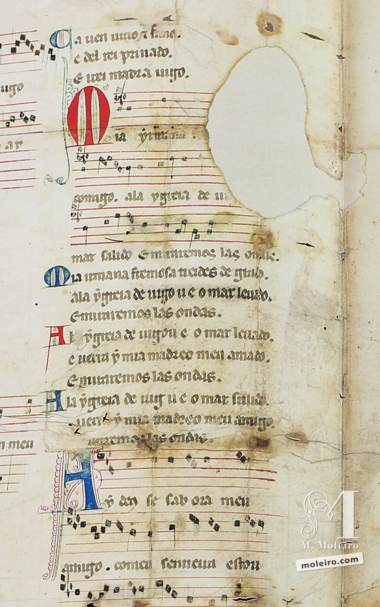 Ca ven viuo e sano.
e del rei priuado.
E irei madr a uigo.
Mia yrmana
comigo. ala ygreia de ui
mar salido E miraremos las ondas.
Mia irmana fremosa treides de grado.
ala ygreia de uigo u e o mar leuado.
E miraremos las ondas.
Ala ygreia de uigo u e o mar leuado.
e uerra y mia madre o meu amado.
E miraremos las ondas.
Ala ygreia de uig u e o mar salido.
uerra y mia madre o meu amigo
miraremos las ondas.
Ay deus se sab ora meu
amigo. comeu senneira estou
uigo
ay
n meu
M
M. Moleiro
moleiro.com